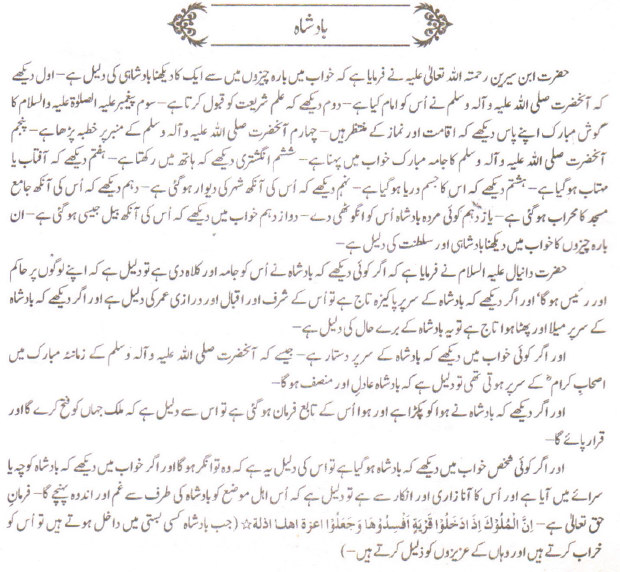 بادشاہ
حضرت ابن سیرین رحمتہ اللہ تعالیٰ علیہ نے فرمایا ہے کہ خواب میں بارہ چیزوں میں سے ایک کا دیکھنا بادشاہی کی دلیل ہے۔ اول دیکھے
کہ آنحضرت صلی اللہ علیہ و آلہ وسلم نے اُس کو امام کیا ہے۔ دوم دیکھے کہ علم شریعت کو قبول کرتا ہے۔ سوم پیغمبر علیہ الصلوٰۃ علیہ والسلام کا
گوش مبارک اپنے پاس دیکھے کہ اقامت اور نماز کے منتظر ہیں۔ چہارم آنحضرت صلی اللہ علیہ و آلہ وسلم کے منبر پر خطبہ پڑھا ہے۔ پنجم
آنحضرت صلی اللہ علیہ و آلہ وسلم کا جامہ مبارک خواب میں پہنا ہے۔ ششم انگشتری دیکھے کہ ہاتھ میں رکھتا ہے۔ ہفتم دیکھے کہ آفتاب یا
مہتاب ہو گیا ہے۔ ہشتم دیکھے کہ اس کا جسم دریا ہو گیا ہے۔ نہم دیکھے کہ اُس کی آنکھ شہر کی دیوار ہو گئی ہے۔ دہم دیکھے کہ اُس کی آنکھ جامع
مسجد کا محراب ہو گئی ہے۔ یازدہم کوئی مردہ بادشاہ اُس کو انگوٹھی دے۔ دوازدہم خواب میں دیکھے کہ اُس کی آنکھ بیل جیسی ہو گئی ہے۔ ان
بارہ چیزوں کا خواب میں دیکھنا بادشاہی اور سلطنت کی دلیل ہے۔
حضرت دانیال علیہ السلام نے فرمایا ہے کہ اگر کوئی دیکھے کہ بادشاہ نے اُس کو جامہ اور کلاہ دی ہے تو دلیل ہے کہ اپنے لوگوں پر حاکم
اور رئیس ہو گا' اور اگر دیکھے کہ بادشاہ کے سر پر پاکیزہ تاج ہے تو اُس کے شرف اور اقبال اور درازی عمر کی دلیل ہے اور اگر دیکھے کہ بادشاہ
کے سر پر میلا اور پھٹا ہوا تاج ہے تو یہ بادشاہ کے برے حال کی دلیل ہے۔
اور اگر کوئی خواب میں دیکھے کہ بادشاہ کے سر پر دستار ہے۔ جیسے کہ آنحضرت صلی اللہ علیہ و آلہ وسلم کے زمانہ مبارک میں
اصحاب کرامؓ کے سر پر ہوتی تھی تو دلیل ہے کہ بادشاہ عادل اور منصف ہو گا۔
اور اگر دیکھے کہ بادشاہ نے ہوا کو پکڑا ہے اور ہوا اُس کے تابع فرمان ہو گئی ہے تو اس سے دلیل ہے کہ ملک جہاں کو فتح کرے گا اور
قرار پائے گا۔
اور اگر کوئی شخص خواب میں دیکھے کہ بادشاہ ہو گیا ہے تو اس کی دلیل یہ ہے کہ وہ تو انگر ہو گا اور اگر خواب میں دیکھے کہ بادشاہ کوچہ یا
سرائے میں آیا ہے اور اُس کا آنا زاری اور انکار سے ہے تو دلیل ہے کہ اُس اہل موضع کو بادشاہ کی طرف سے غم اور اندوہ پہنچے گا۔ فرمان
حق تعالیٰ ہے۔ اِنَّ الْمُلُوْکَ اِذَا دَخَلُوْا قَرْیَةً اَفْسَدُوْهَا وَجَعَلُوْا اعزۃ اھلھا اذلۃ☆ (جب بادشاہ کسی بستی میں داخل ہوتے ہیں تو اُس کو
خراب کرتے ہیں اور وہاں کے عزیزوں کو ذلیل کرتے ہیں۔)